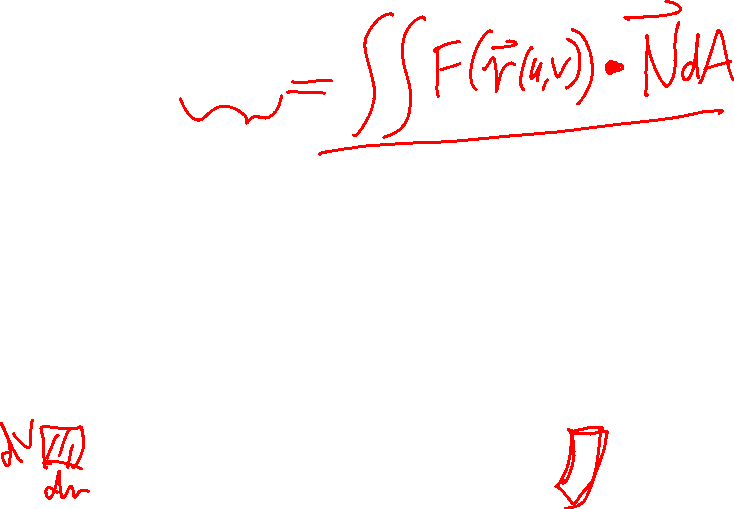 = ∬ F(r⃗(u,v)) • N⃗ dA
dv
du